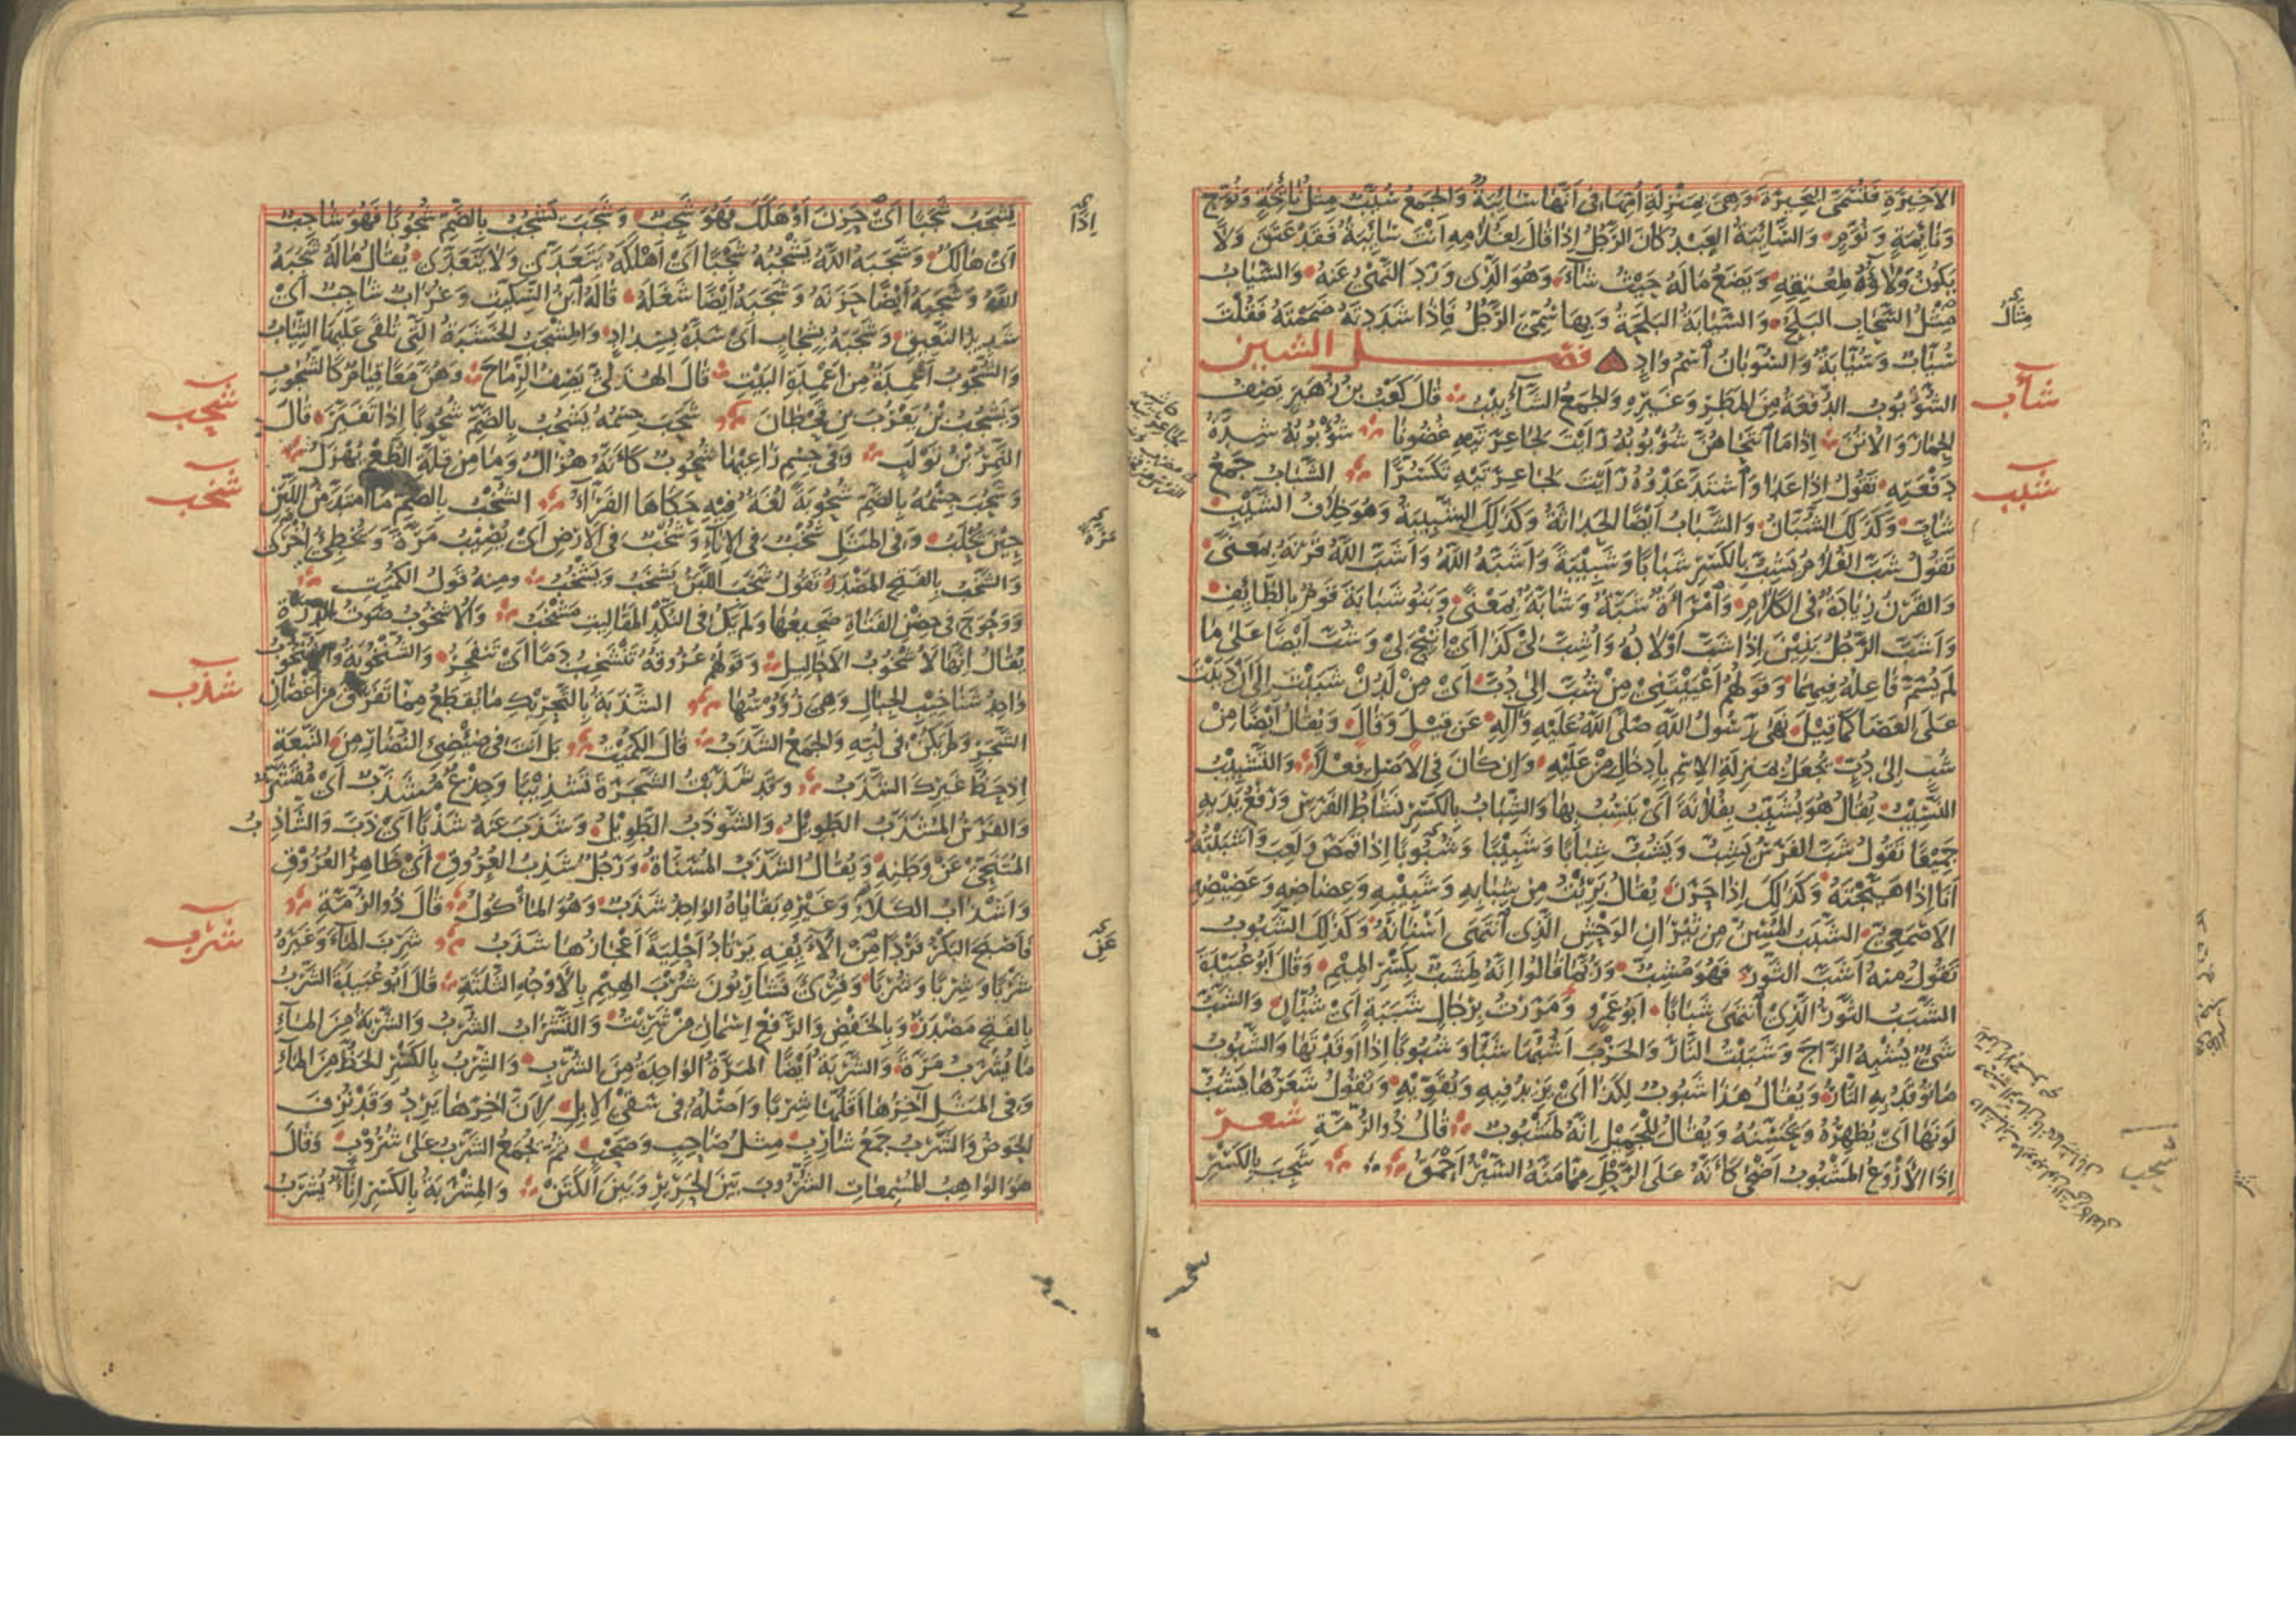 الاخيرة فتسمى البحيرة وهي بمنزلة أمها في أنها سائبة والجمع سيب مثل نائحة ونوح
ونائمة ونوم والسائبة العبد كان الرجل اذا قال لغلامه انت سائبة فقد عتق ولا
يكون ولاؤه لمعتقه ويضع ماله حيث شاء وهو الذي ورد النهي عنه والسياب
مثل السحاب البلح والسيابة البلحة وبها سمي الرجل فاذا شددته ضممته فقلت
سياب وسيابة والسوبان اسم واد فصل الشين
شأب
الشؤبوب الدفعة من المطر وغيره والجمع الشآبيب قال كعب بن زهير يصف
الحمار والاتن اذا ما انتحاهن شؤبوبه رأيت لجاعرتيه غضونا شؤبوبه شدة
دفعته تقول اذا عدا واشتد عدوه رأيت لجاعرتيه تكسرا الشباب جمع
شبب
شاب وكذلك الشبان والشباب ايضا الحداثة وكذلك الشبيبة وهو خلاف الشيب
تقول شب الغلام يشب بالكسر شبابا وشبيبة واشبه الله واشب الله قرنه بمعنى
والقرن زيادة في الكلام وامرأة شبة وشابة بمعنى وبنو شبابة قوم بالطائف
واشب الرجل بنين اذا شب اولاده واشب لي كذا اي اتيح لي وشب ايضا على ما
لم يسم فاعله فيهما وقولهم اعييتني من شب الى دب اي من لدن شببت الى ان دببت
على العصا كما قيل نهى رسول الله صلى الله عليه وآله عن قيل وقال ويقال ايضا من
شب الى دب تجعل بمنزلة الاسم بادخال من عليه وان كان في الاصل فعلا والتشبيب
النسيب يقال هو يشبب بفلانة اي ينسب بها والشباب بالكسر نشاط الفرس ورفع يديه
جميعا تقول شب الفرس يشب ويشب شبابا وشبيبا وشبوبا اذا قمص ولعب واشببته
انا اذا هيجته وكذلك اذا حرن يقال برئت من شبابه وشبيبه وعضاضه وعضيضه
الاصمعي الشبب المسن من ثيران الوحش الذي انتهى اسنانه وكذلك الشبوب
تقول منه اشب الثور فهو مشب وربما قالوا انه لمشب بكسر الميم وقال ابو عبيدة
الشبب الثور الذي انتهى شبابا ابو عمرو ومررت برجال شببة اي شبان والشب
شيء يشبه الزاج وشببت النار والحرب اشبها شبا وشبوبا اذا اوقدتها والشبوب
ما توقد به النار ويقال هذا شبوب لكذا اي يزيد فيه ويقويه وتقول شعرها يشب
لونها اي يظهره ويحسنه ويقال للجميل انه لمشبوب قال ذو الرمة شعر
اذا الاروع المشبوب اضحى كأنه على الرحل مما منه السير احمق شجب بالكسر
مثال
شجب
يشجب شجبا اي حزن او هلك فهو شجب وشجب يشجب بالضم شجوبا فهو شاجب
اي هالك وشجبه الله يشجبه شجبا اي اهلكه يتعدى ولا يتعدى يقال ماله شجبه
الله وشجبه ايضا حزنه وشجبه ايضا شغله قاله ابن السكيت وغراب شاجب اي
شديد النعيق وشجبه بشجاب اي سده بسداد والمشجب الخشبة التي تلقى عليها الثياب
والشجوب اعمدة من اعمدة البيت قال الهذلي يصف الرماح وهن معا قيام كالشجوب
ويشجب بن يعرب بن قحطان شحب جسمه يشحب بالضم شحوبا اذا تغير قال
شحب
النمر بن تولب وفي جسم راعيها شحوب كأنه هزال وما من قلة الطعم يهزل
وشحب جسمه بالضم شحوبة لغة فيه حكاها الفراء الشخب بالضم ما امتد من اللبن
شخب
حين يحلب وفي المثل شخب في الاناء وشخب في الارض اي يصيب مرة ويخطئ اخرى
والشخب بالفتح المصدر تقول شخب اللبن يشخب ويشخب ومنه قول الكميت
ووحوح في حضن الفتاة ضجيعها ولم يك في النكد المقاليت مشخب والاشخوب صوت الدرة
يقال انها لاشخوب الاحاليل وقولهم عروقه تنشخب دما اي تنفجر والشنخوبة والشنخوب
واحد شناخيب الجبال وهي رؤوسها الشذبة بالتحريك ما يقطع مما تفرق من اغصان
شذب
الشجر ولم يكن في لبه والجمع الشذب قال الكميت بل انت في ضئضئ النضار من النبعة
اذ حظ غيرك الشذب وقد شذبت الشجرة تشذيبا وجذع مشذب اي مقشر
والفرس المشذب الطويل والشوذب الطويل وشذب عنه شذبا اي ذب والشاذب
المتنحي عن وطنه ويقال الشذب المسناة ورجل شذب العروق اي ظاهر العروق
واشذاب الكلأ وغيره بقاياه الواحد شذب وهو المأكول قال ذو الرمة
فاصبح البكر فردا من الائفه يرتاد احلية اعجازها شذب شرب الماء وغيره
شرب
شربا وشربا وشربا وقرئ فشاربون شرب الهيم بالاوجه الثلثة قال ابو عبيدة الشرب
بالفتح مصدر وبالخفض والرفع اسمان من شربت والتشراب الشرب والشربة من الماء
ما يشرب مرة والشربة ايضا المرة الواحدة من الشرب والشرب بالكسر الحظ من الماء
وفي المثل آخرها اقلها شربا واصله في سقي الابل لان آخرها يرد وقد نزف
الحوض والشرب جمع شارب مثل صاحب وصحب ثم يجمع الشرب على شروب وقال
هو الواهب المسمعات الشروب بين الحرير وبين الكتن والمشربة بالكسر اناء يشرب
اذا
مرة
عن